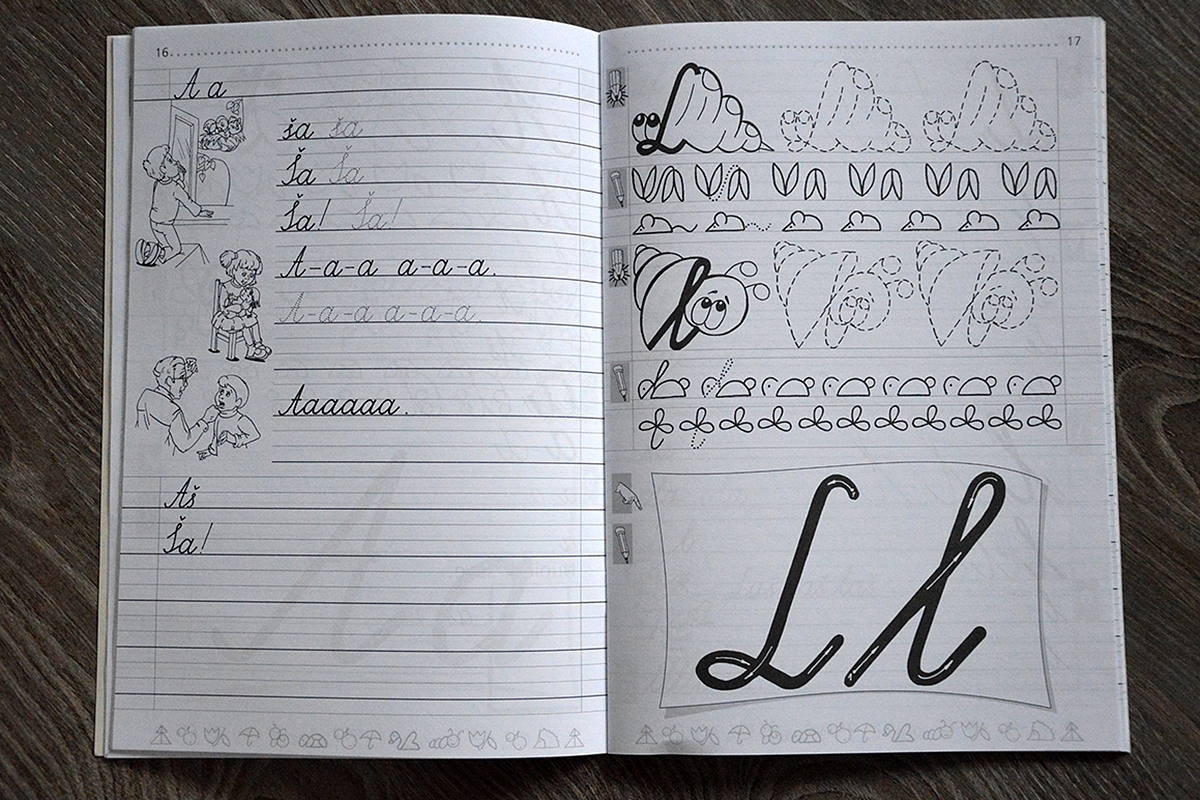 16
A a
ša ša
Ša Ša
Ša! Ša!
A-a-a a-a-a.
A-a-a a-a-a.
Aaaaaa.
Aš
Ša!
17
L l